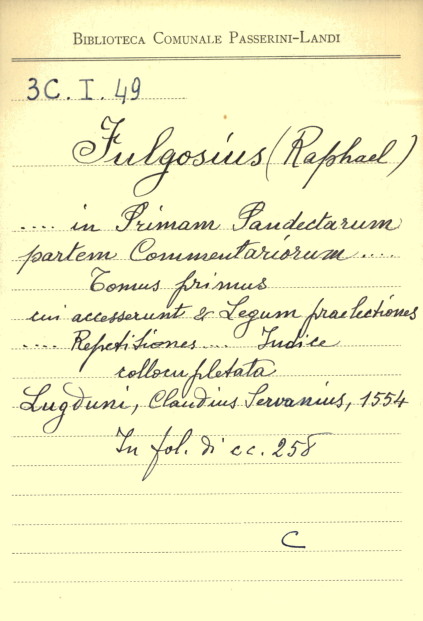 BIBLIOTECA COMUNALE PASSERINI-LANDI
3C. I. 49
Fulgosius (Raphael)
.... in Primam Pandectarum
partem Commentariorum ....
Tomus primus
cui accesserunt & Legum praelectiones
.... Repetitiones .... Indice
collocupletata
Lugduni, Claudius Servanius, 1554
In fol. di cc. 258
C